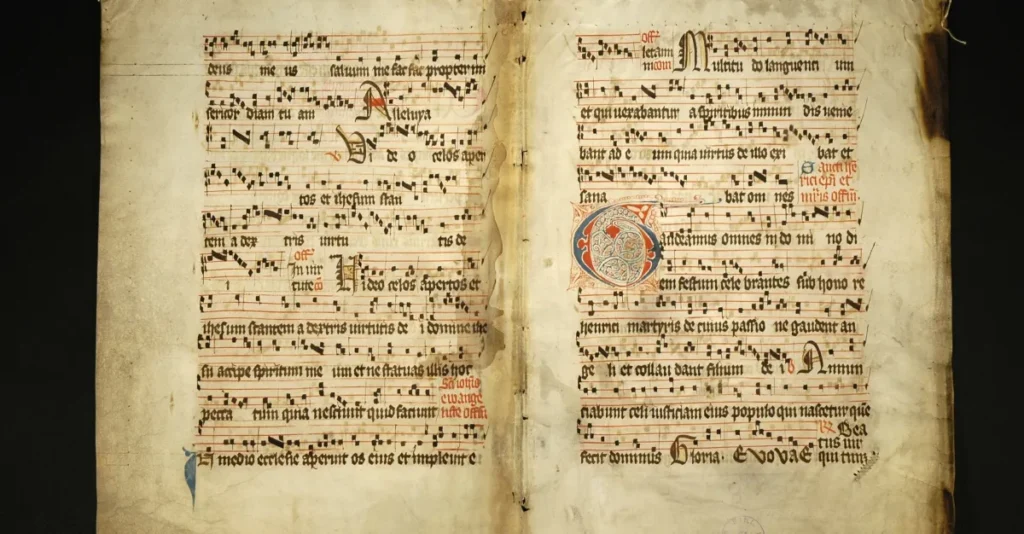 deus me us saluum me fac fac propter im
sericor diam tu am Alleluya
Vi de o celos aper
tos et ihesum stan
tem a dex tris uirtu tis de
i off In uir tute Uideo celos apertos et
ihesum stantem a dextris uirtutis de i domine ihe
su accipe spiritum me um et ne statuas illis hoc
pecca tum quia nesciunt quid faciunt Sci iohis ewange liste offm
In medio ecclesie aperuit os eius et impleuit e
off letam Multitu do languenti um
et qui uexabantur a spiritibus inmun dis uenie
bant ad e um quia uirtus de illo exi bat et
sana bat om nes Sancti he rici epi et mris offm.
Gaudeamus omnes in do mi no di
em festum cele brantes sub hono re
henrici martyris de cuius passio ne gaudent an
ge li et collau dant filium de i Annun
ciabunt celi iusticiam eius populo qui nascetur que
fecit dominus Gloria. EVOVAE Bea tus uir qui tim